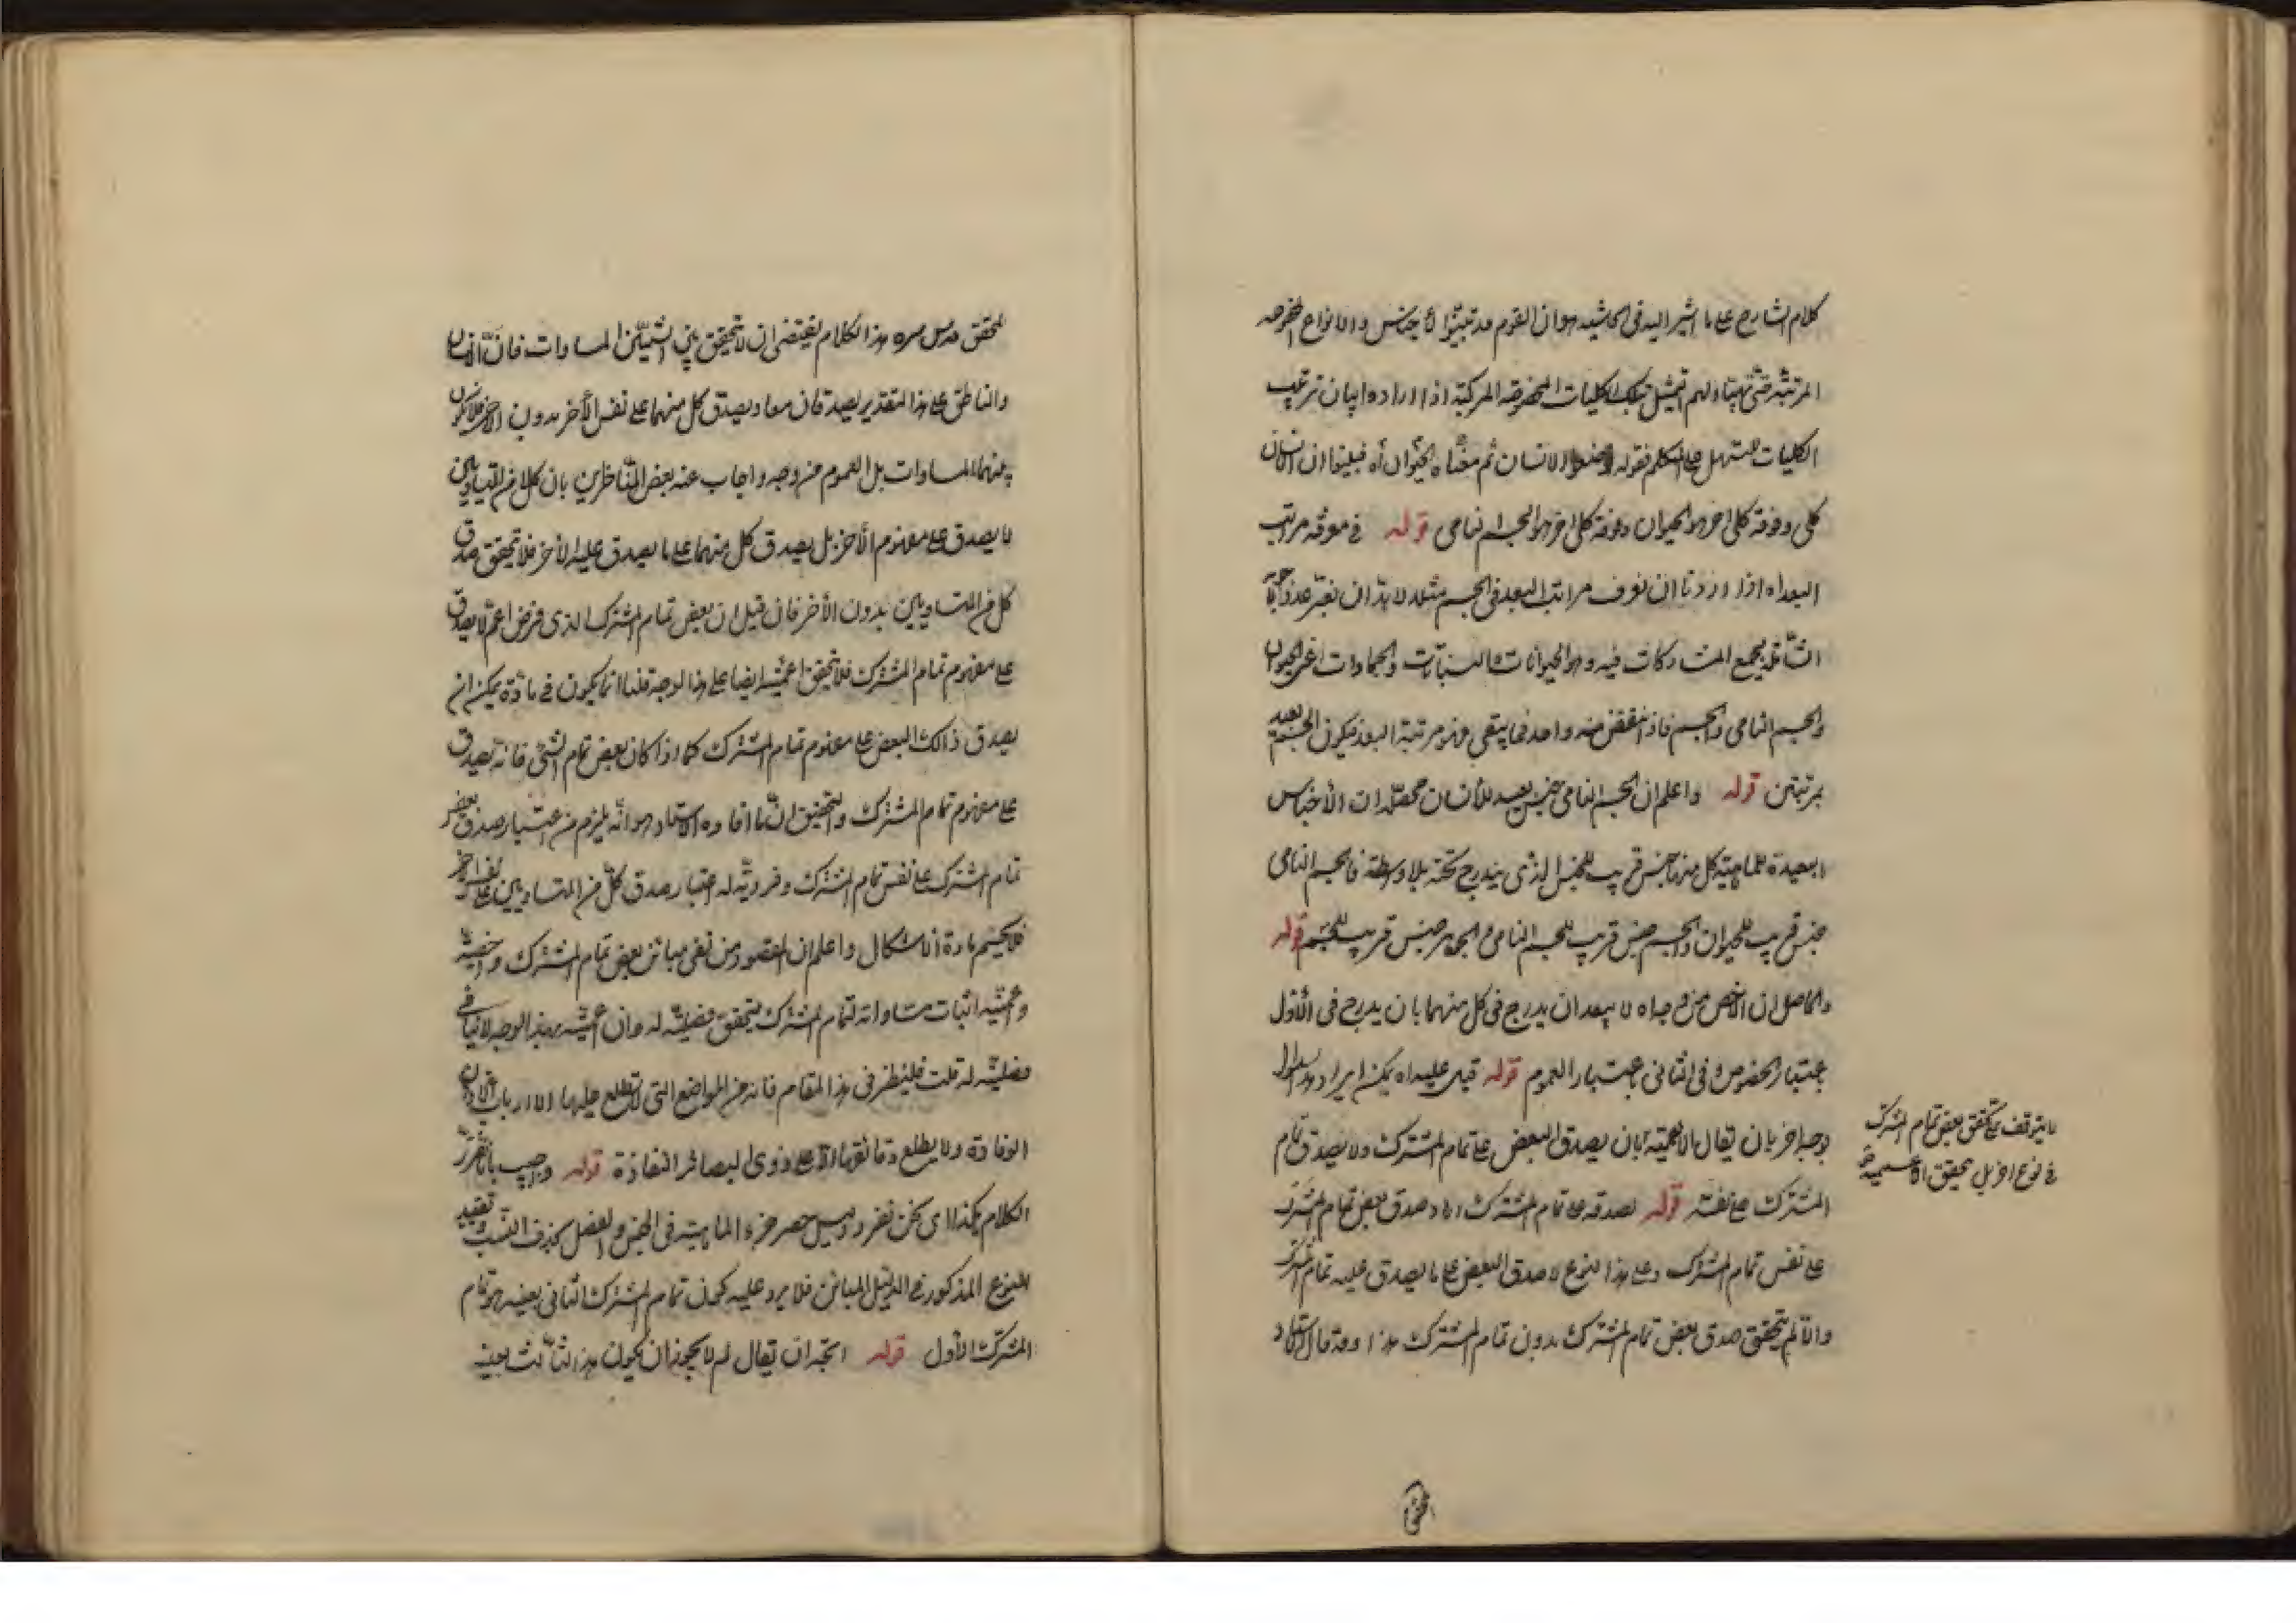 كلام الشارح على ما اشير اليه فى الحاشيه هو ان القوم قد تبيّنوا الأجناس والانواع
المرتبة حتى يتهيّأ لهم التمثيل بتلك الكليات المخصوصة المركبة اذا ارادوا بيان ترتيب
الكليات فقوله وضعوا الانسان ثم الحيوان اه فبيّنوا ان الانسان
كلى وفوقه كلى اخر هو الحيوان وفوقه كلى اخر هو الجسم النامى قوله فى معرفة مراتب
البعد اه اذا اردنا ان نعرف مراتب البعد فى الجسم مثلا لا بدّ ان نعتبر
لجميع المشاركات فيه وهو الحيوانات والنباتات والجمادات اعنى الحيوان
والجسم النامى والجسم فاذا نقص منه واحد فما يبقى فهو مرتبة البعد فيكون الجسم بعيد
بمرتبتين قوله واعلم ان الجسم النامى جنس بعيد للأنسان محصّله ان الأجناس
البعيدة للماهية كل منها جنس قريب للجنس الذى يندرج تحته بلا واسطة فالجسم النامى
جنس قريب للحيوان والجسم جنس قريب للجسم النامى والجوهر جنس قريب للجسم قوله
والحاصل ان الاخص من وجه اه لا يبعد ان يدرج فى كل منهما بان يدرج فى الأوّل
باعتبار الخصوص وفى الثانى باعتبار العموم قوله قيل عليه اه يمكن ايراد هذا السؤال
بوجه اخر بان يقال الأعمية بان يصدق البعض على تمام المشترك ولا يصدق تمام
المشترك على نفسه قوله لصدقه على تمام المشترك اه اراد صدق بعض تمام المشترك
على نفس تمام المشترك وعلى هذا النوع لا صدق البعض على ما يصدق عليه تمام المشترك
والّا لم يتحقق صدق بعض تمام المشترك بدون تمام المشترك هذا وقد قال الاستاد
ما يتوقف على تحقق بعض تمام المشترك
فى نوع اخر بل تحقق الاعمية
المحقق
المحقق قدس سره هذا الكلام يقتضى ان لا يتحقق بين الشيئين المساوات فانّ الانسان
والناطق على هذا التقدير يصدقان معا ويصدق كل منهما على نفس الأخر بدون الاخر فلا يكون
بينهما المساوات بل العموم من وجه واجاب عنه بعض المتأخرين بان كلا من المتساويين
لا يصدق على مفهوم الأخر بل يصدق كل منهما على ما يصدق عليه الأخر فلا يتحقق صدق
كل من المتساويين بدون الأخر فان قيل ان بعض تمام المشترك الذى فرض اعمّ لا يصدق
على مفهوم تمام المشترك فلا يتحقق اعميّته ايضا على هذا الوجه قلنا انما يكون فى مادّة يمكن ان
يصدق ذالك البعض على مفهوم تمام المشترك كما اذا كان بعض تمام الشئ فانه يصدق
على مفهوم تمام المشترك والتحقيق انّ ما افاده الاستاد هو انّه يلزم من اعتبار صدق بعض
تمام المشترك على نفس تمام المشترك وفرديّته له اعتبار صدق كلّ من المتساويين على نفس الاخر
فلا يحسم مادة الاشكال واعلم ان المقصود من نفى مباينة بعض تمام المشترك واخصيّته
واعميّته اثبات مساواته لتمام المشترك ليتحقق فصليّته له وان اعميّته بهذا الوجه لا ينافى
فصليّته له قلت فلينظر فى هذا المقام فانه من المواضع التى لا يطلع عليها الا ارباب الاذهان
الوقادة ولا يطلع دقائقها الّا على ذوى البصائر النقادة قوله واجيب بانّا نقرّر
الكلام هكذا اى نحن نقرر دليل حصر جزء الماهية فى الجنس والفصل بحذف النسب وتقييد
النوع المذكور فى الدليل المباين فلا يرد عليه كون تمام المشترك الثانى بعينه هو تمام
المشترك الأول قوله اتجه ان يقال لم لا يجوز ان يكون هذا الثالث بعينه